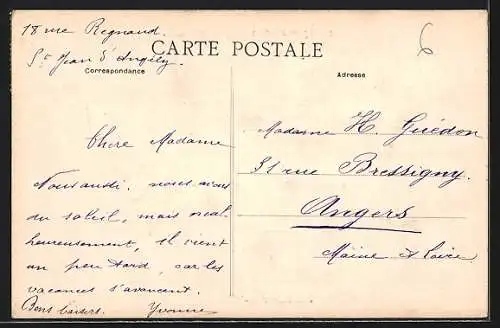 18 rue Regnaud.
St Jean d'Angély.
CARTE POSTALE
6
Correspondance
Adresse
Chere Madame
Nous aussi, nous avons
du soleil, mais malheureusement, il vient
un peu tard, car les
vacances s'avancent.
Bons baisers. Yvonne
Madame H. Guédon
51 rue Bressigny.
Angers
Maine et Loire.